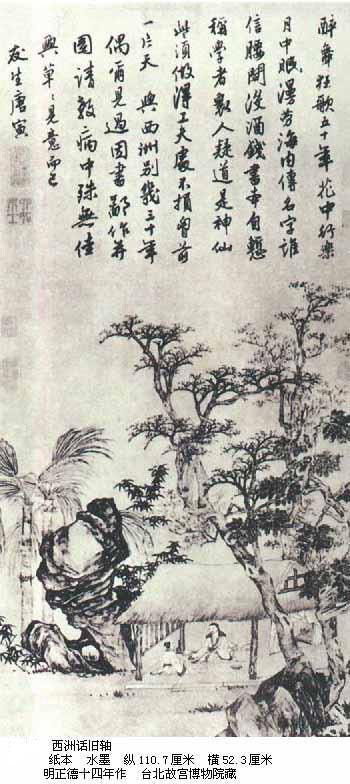 醉舞狂歌五十年花中行樂
月中眠漫勞海内傳名字誰
信腰間沒酒錢書本自慙
稱學者衆人疑道是神仙
些須做得工夫處不損胸前
一片天 與西洲別幾三十年
偶爾見過因書鄙作并
圖請教病中殊無佳
興草々見意而已
友生唐寅
西洲话旧轴
纸本 水墨 纵110.7厘米 横52.3厘米
明正德十四年作 台北故宫博物院藏